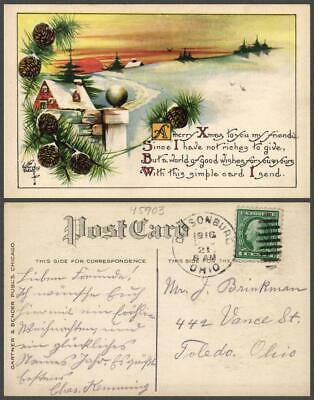 A merry Xmas to you my friends
Since I have not riches to give,
But a world of Good wishes for you & yours
With this simple card I send.
45903
Post Card
THIS SIDE FOR CORRESPONDENCE
THIS SIDE IS FOR ADDRESS
GARTNER & BENDER PUBL'S, CHICAGO.
Liebe Freunde!
Ich wünsche Euch
hier mit ein frohes
Weihnachten und
ein glückliches
Neues Jahr. Es grüßt
bestens
Chas. Hemming
1916
21
8 AM
OHIO
Mr. J. Brinkman
442 Vance St.
Toledo. Ohio